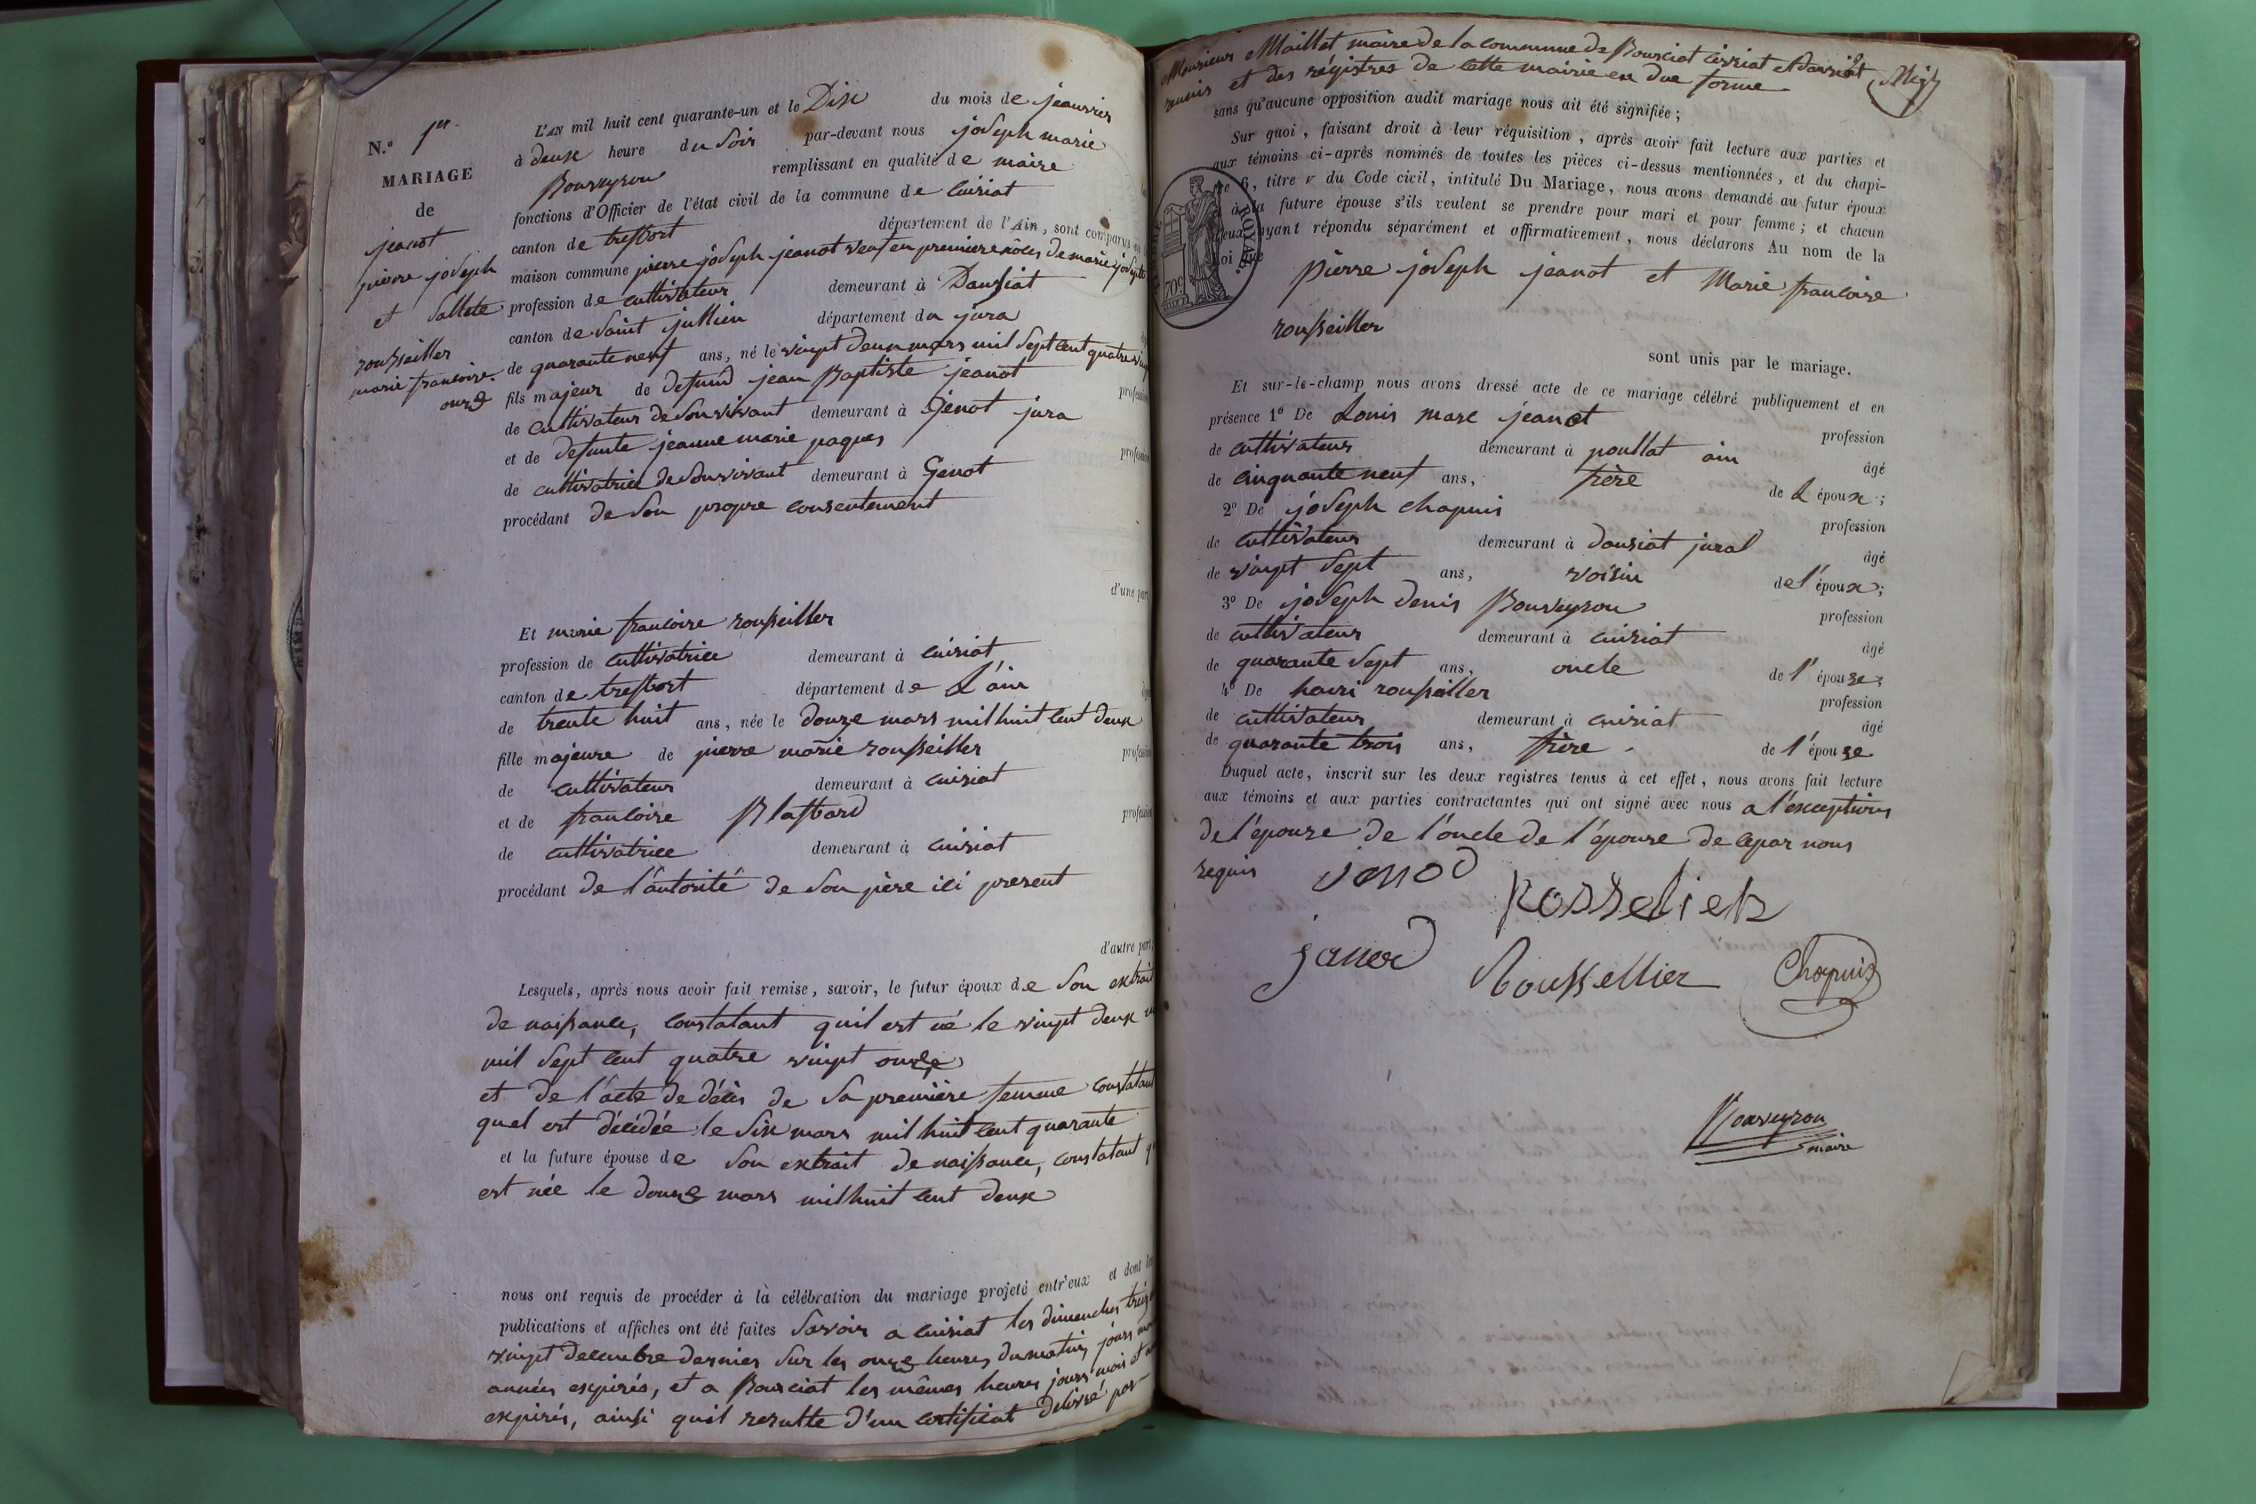 N.º 1er
MARIAGE
de
jeanot
pierre joseph
et Sallete
roußeiller
marie francoise
L'an mil huit cent quarante-un et le Dix du mois de jeanvier
à deux heure du Soir par-devant nous joseph marie
Bouveyron remplissant en qualité de maire
fonctions d'Officier de l'état civil de la commune de Cuisiat
canton de treffort département de l'Ain, sont comparus
maison commune pierre joseph jeanot veuf en premiere nôces de marie josephte
profession de cultivateur demeurant à Dansiat
canton de Saint jullien département du jura
de quarante neuf ans, né le vingt deux mars mil Sept cent quatre
fils majeur de defund jean Baptiste jeanot profession
de cultivateur de Son vivant demeurant à Genot jura
et de defunte jeanne marie paques profession
de cultivatrice de Son vivant demeurant à Genot
procédant de Son propre consentement
d'une part,
Et marie francoise roußeiller
profession de cultivatrice demeurant à cuisiat
canton de treffort département de L'ain
de trente huit ans, née le douze mars mil huit cent deux
fille majeure de pierre marie roußeiller profession
de cultivateur demeurant à cuisiat
et de francoise Blassard profession
de cultivatrice demeurant à cuisiat
procédant de l'autorité de Son père ici present
d'autre part,
Lesquels, après nous avoir fait remise, savoir, le futur époux de Son extrait
de naißance, constatant quil est né le vingt deux
mil Sept cent quatre vingt onze
et de l'acte de décès de Sa première femme constatant
quel est décédée le Six mars mil huit cent quarante
et la future épouse de Son extrait de naißance, constatant
est née le douze mars mil huit cent deux
nous ont requis de procéder à la célébration du mariage projeté entr'eux et dont les
publications et affiches ont été faites Savoir a cuisiat les dimenches treize
vingt decembre dernier Sur les onze heures du matin, jours mois
années expirés, et a Bourciat les mêmes heures jours mois et
expirés, ainsi quil resulte d'un certificat delivré par
Monsieur Maillet maire de la commune de Bourciat Civriat et dansiat
remis et des régistres de cette mairie en due forme
sans qu'aucune opposition audit mariage nous ait été signifiée;
Sur quoi, faisant droit à leur réquisition, après avoir fait lecture aux parties et
aux témoins ci-après nommés de toutes les pièces ci-dessus mentionnées, et du chapi-
tre 6, titre v du Code civil, intitulé Du Mariage, nous avons demandé au futur époux
à la future épouse s'ils veulent se prendre pour mari et pour femme; et chacun
d'eux ayant répondu séparément et affirmativement, nous déclarons Au nom de la
loi que pierre joseph jeanot et Marie francoise
roußeiller
sont unis par le mariage.
Et sur-le-champ nous avons dressé acte de ce mariage célébré publiquement et en
présence 1º De Louis marc jeanot profession
de cultivateur demeurant à poullat ain âgé
de cinquante neuf ans, frère de L époux;
2º De joseph chapuis profession
de cultivateur demeurant à dansiat jura âgé
de vingt Sept ans, voisin de l'époux;
3º De joseph denis Bouveyron profession
de cultivateur demeurant à cuisiat âgé
de quarante Sept ans, oncle de l'épouse;
4º De henri roußeiller profession
de cultivateur demeurant à cuisiat âgé
de quarante trois ans, frère de l'épouse
Duquel acte, inscrit sur les deux registres tenus à cet effet, nous avons fait lecture
aux témoins et aux parties contractantes qui ont signé avec nous a l'exceptions
de l'épouse de l'oncle de l'épouse de ce par nous
requis
janod
Rosselier
janod
Roussellier
Chapuis
Bouveyron
maire
ROYAL